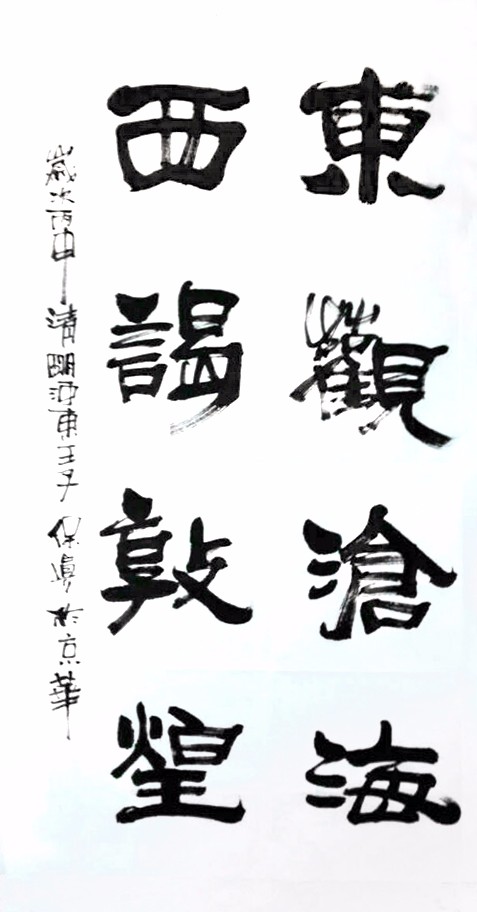 東觀滄海
西謁敦煌
歲次丙申清明沖東王子保真於京華